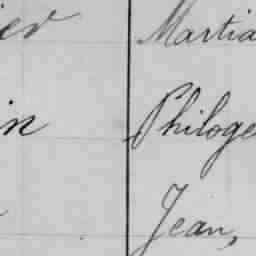 ier Martia
in Philoge
Jean,